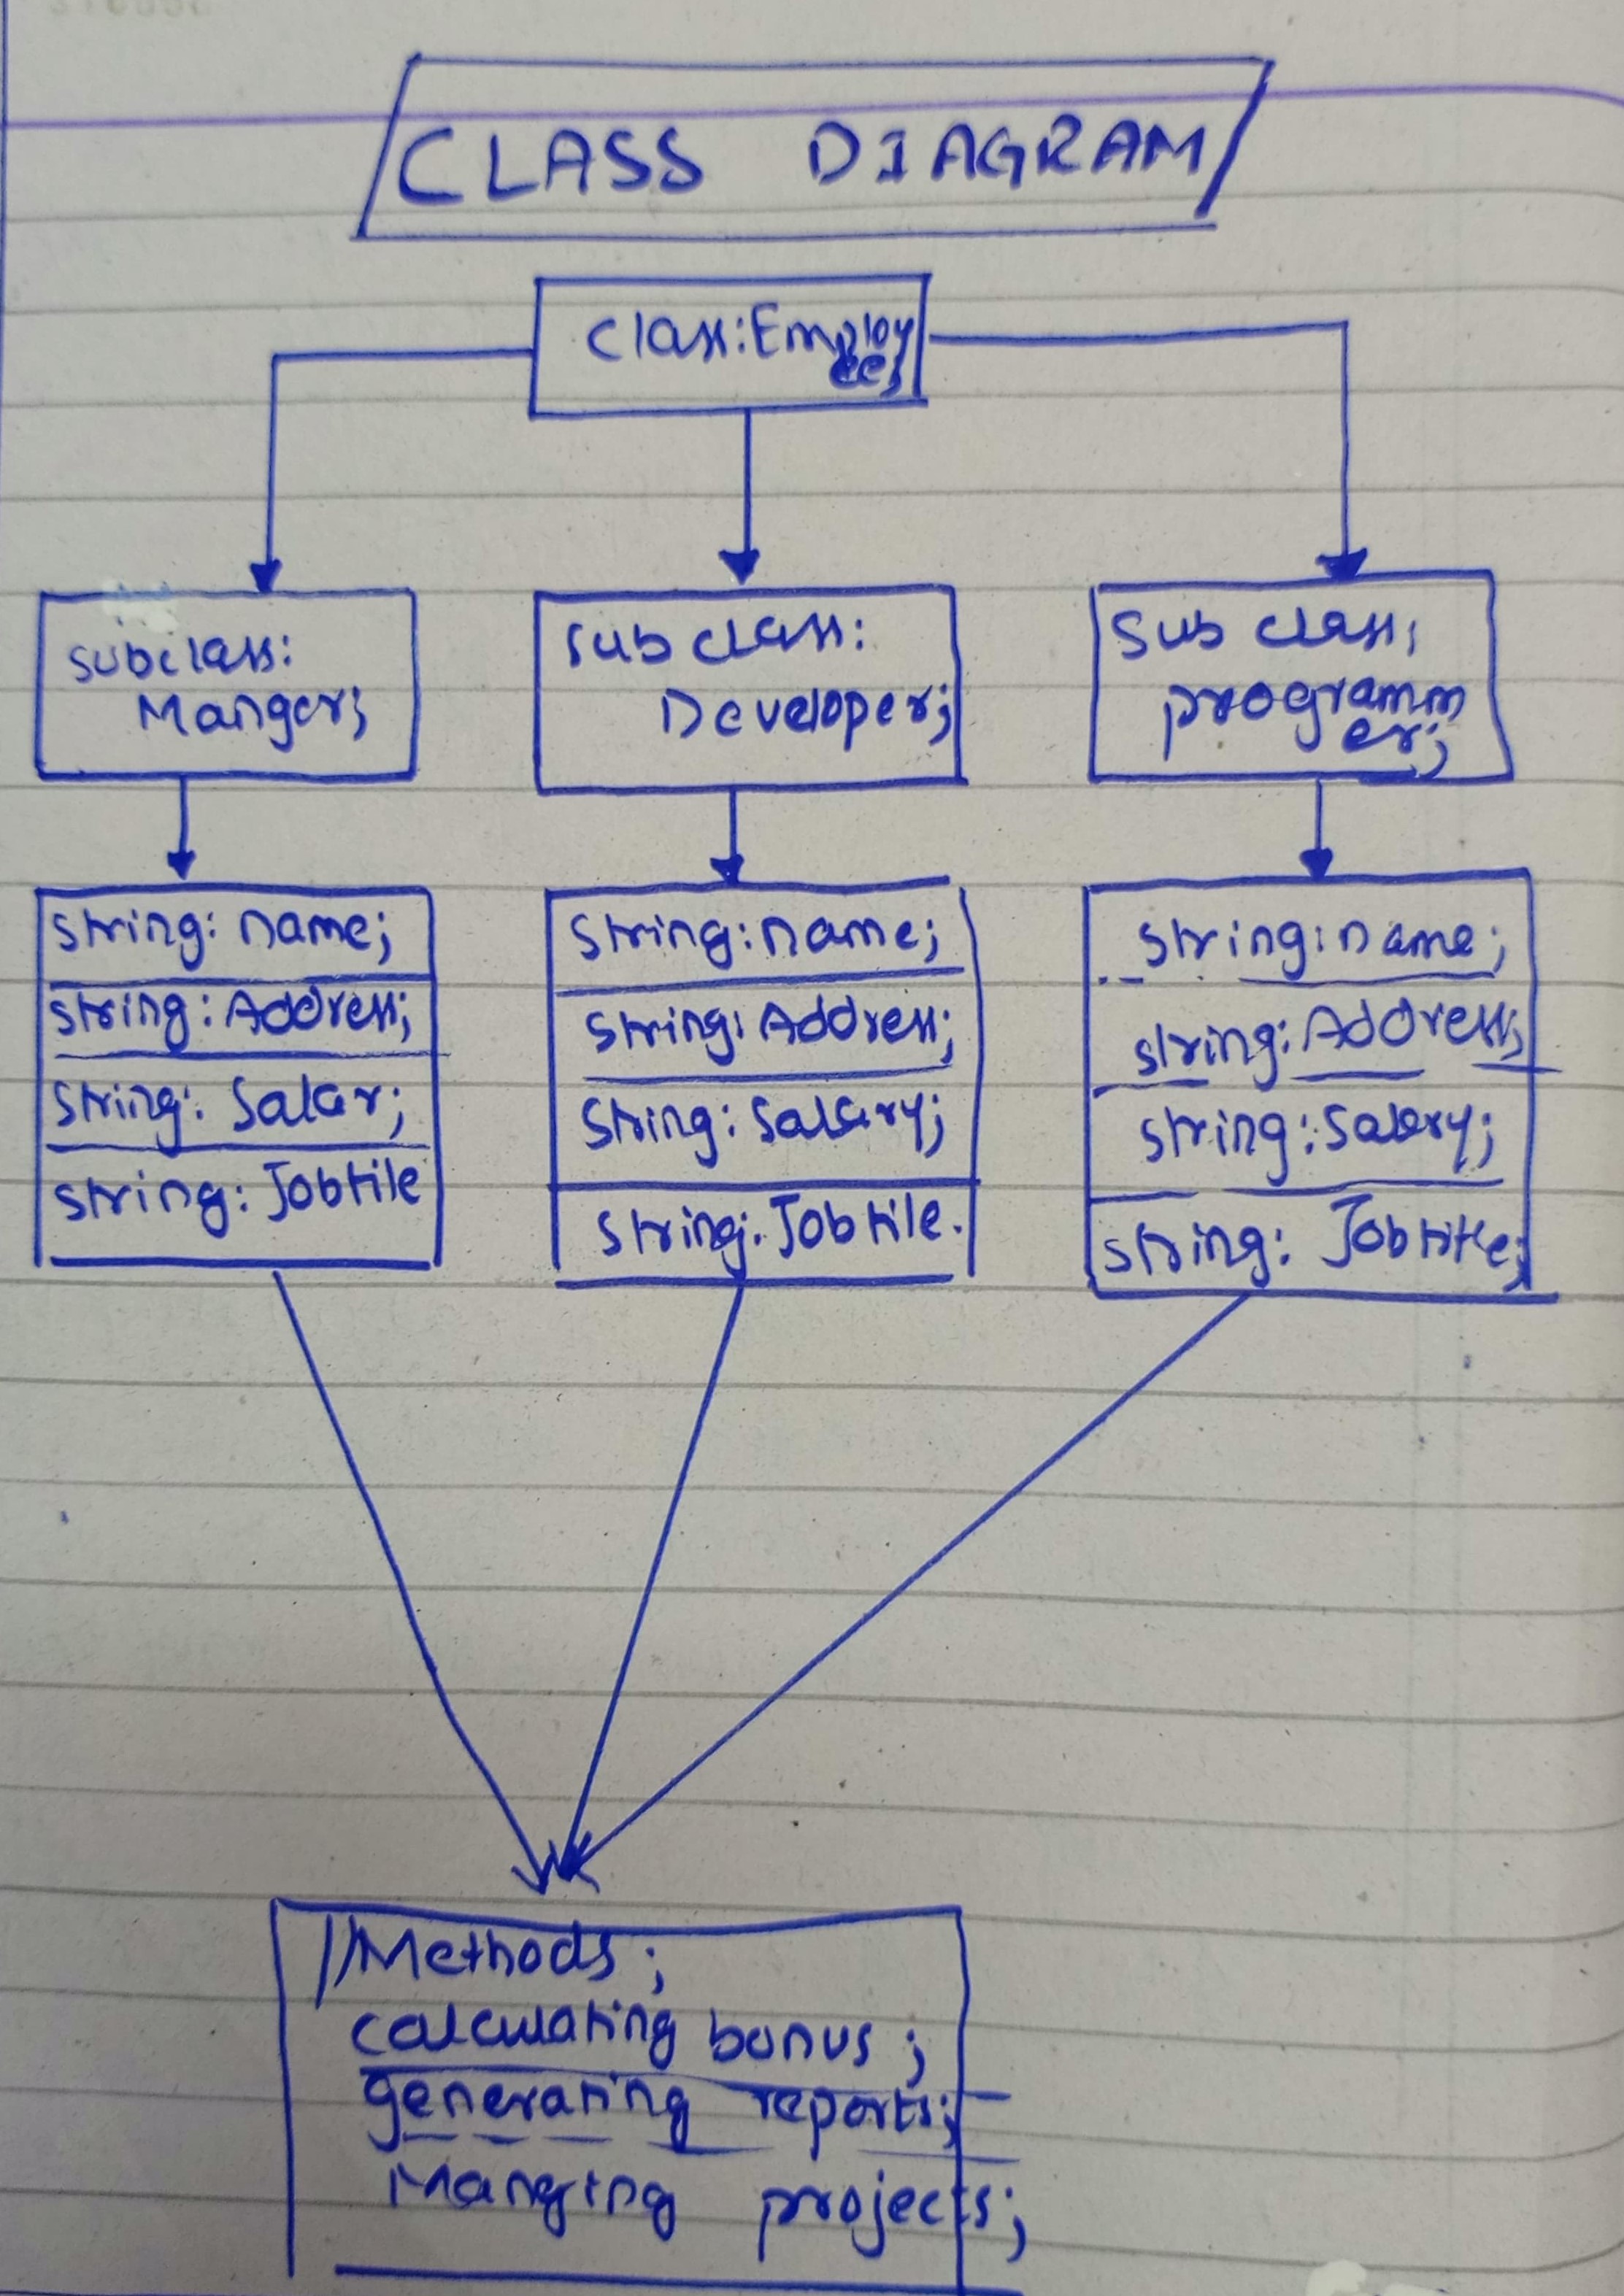 CLASS DIAGRAM
class:Employ
ee;
subclass:
Manger;
sub class:
Developer;
sub class;
programm
er;
string: name;
string: Address;
string: Salar;
string: Jobtile
string: name;
string: Address;
string: Salary;
string: Jobtile.
string: name;
string: Address;
string: Salery;
string: Jobtitle;
//Methods;
calculating bonus;
generating reports;
Manging projects;